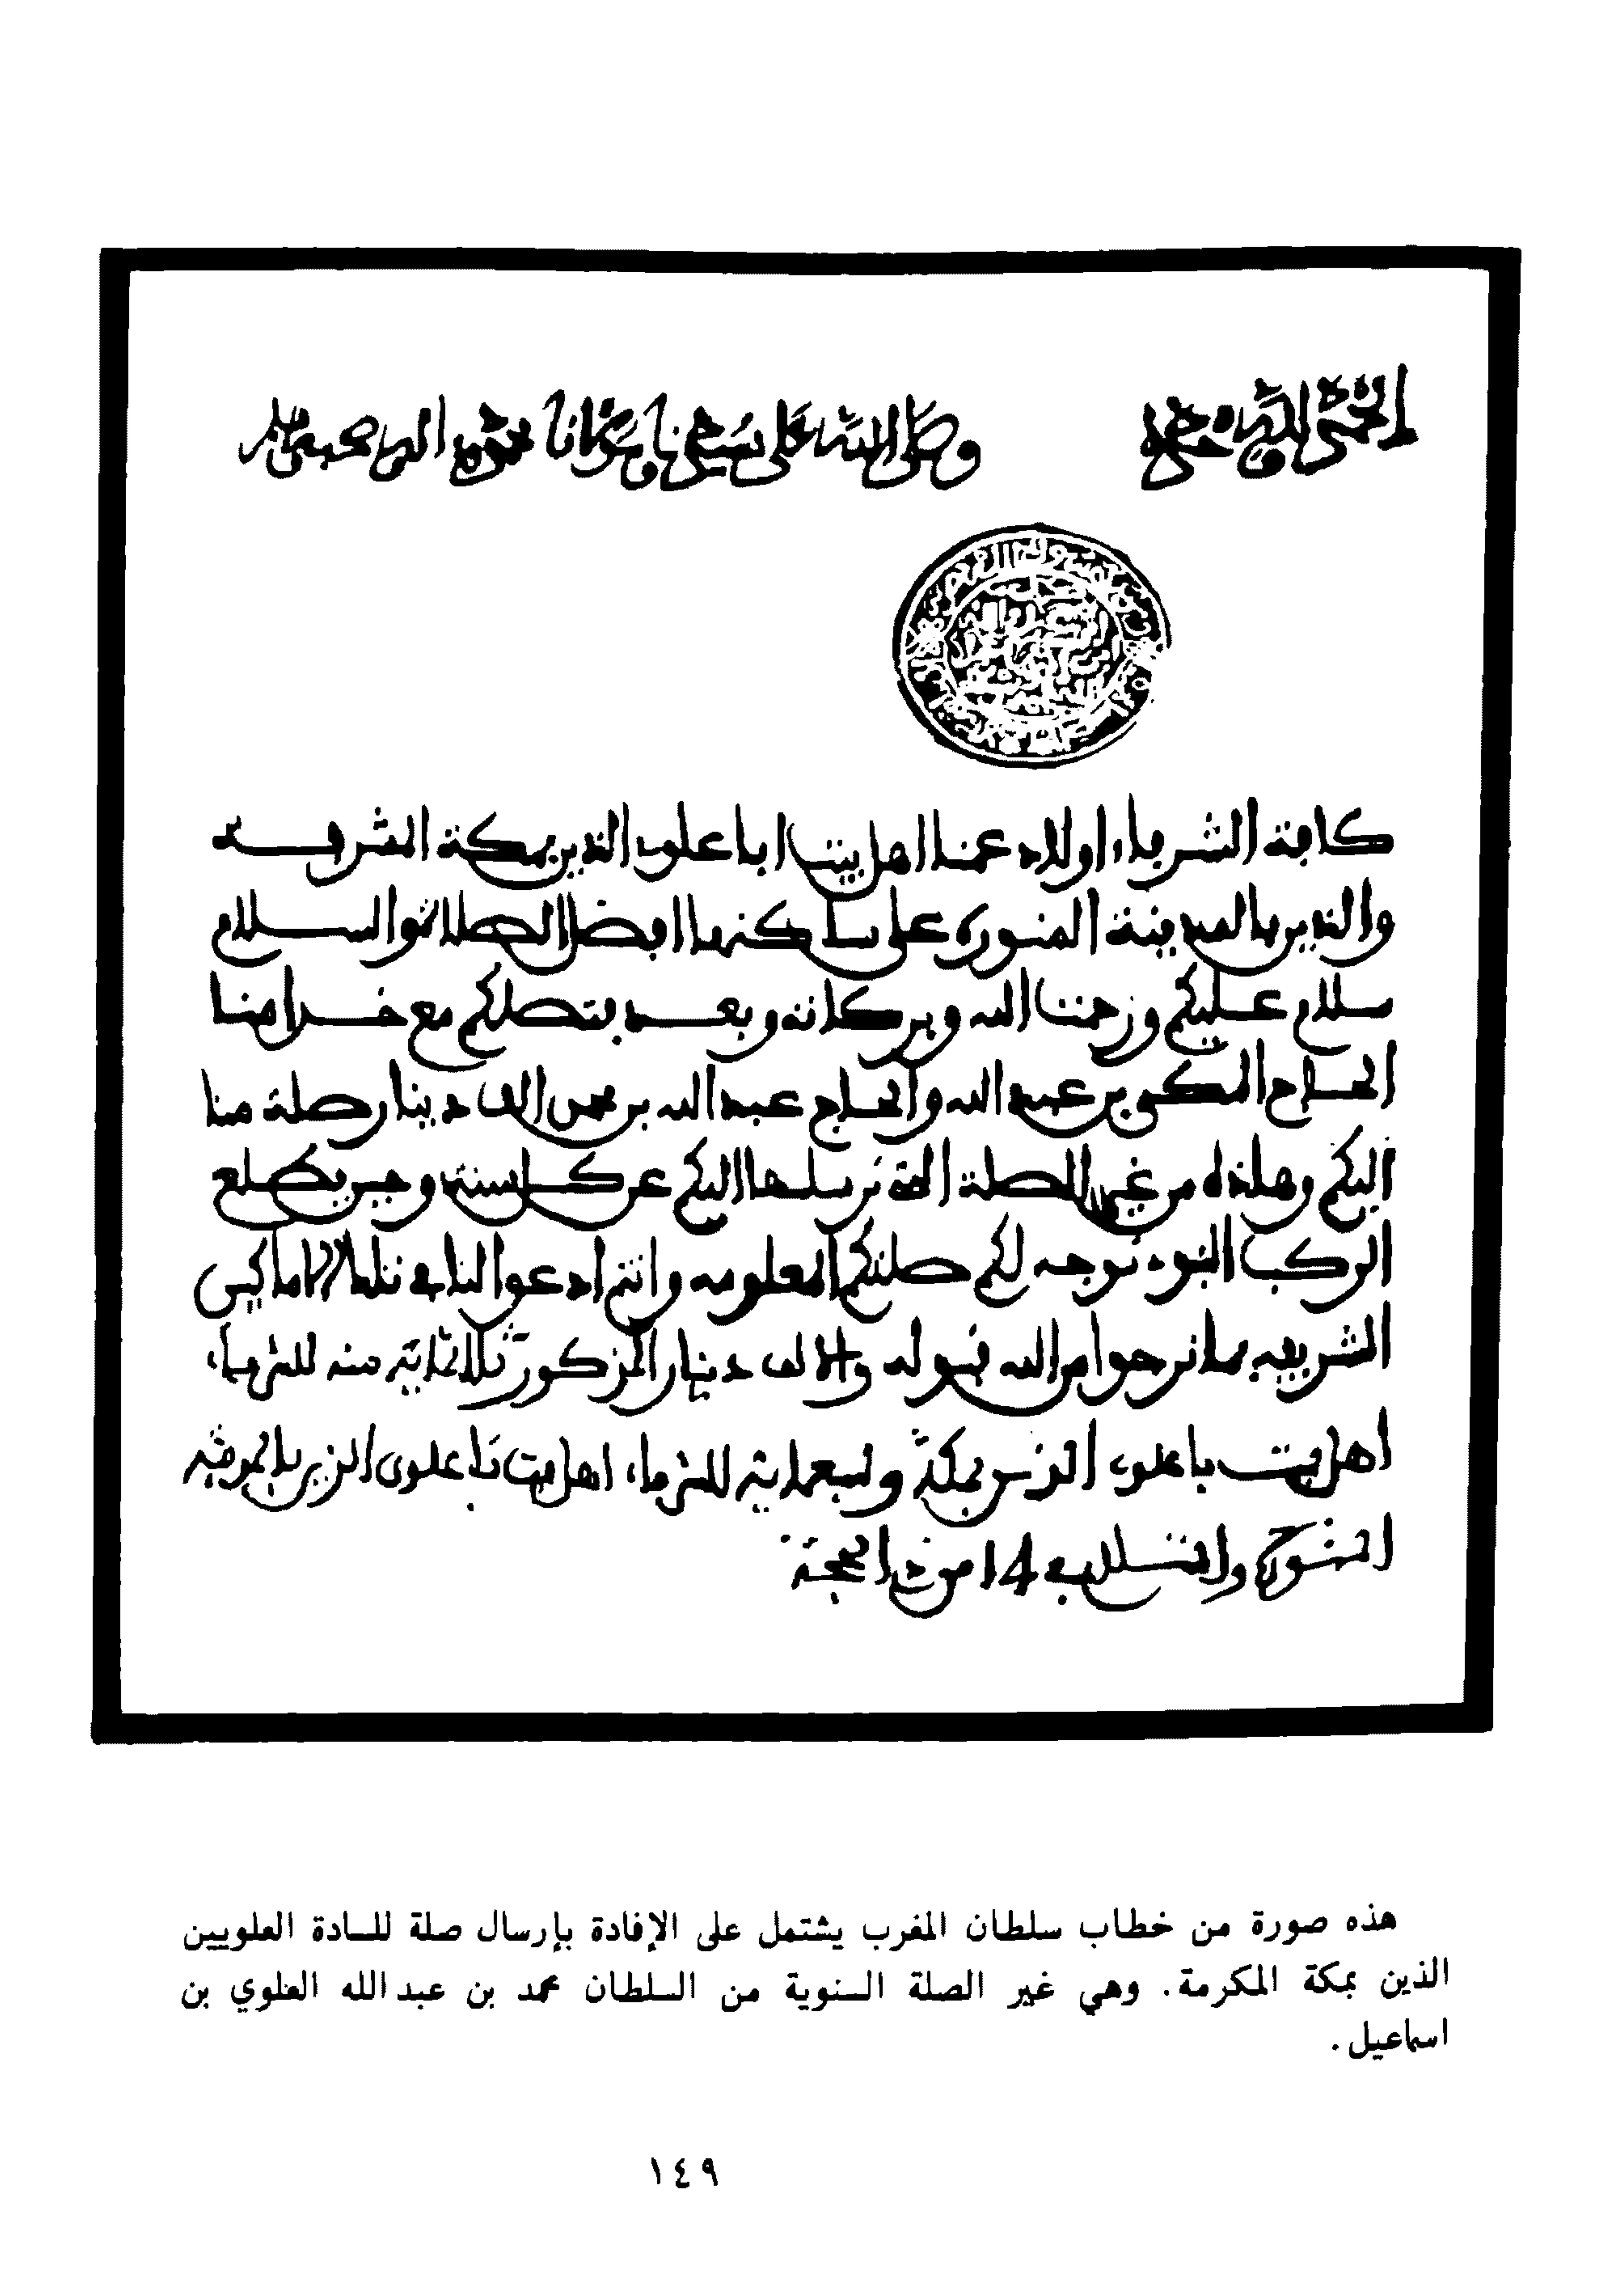 الحمد لله وحده
وصلى الله على سيدنا ومولانا محمد واله وصحبه وسلم
كافة الشرفاء اولاد عمنا اهل بيت ابا علوى الذين بمكة المشرفه
والذين بالمدينة المنوره على ساكنها افضل الصلاة والسلام
سلام عليكم ورحمت الله وبركاته وبعد فتصلكم مع خدامنا
الحاج المكى بن عبد الله والحاج عبد الله بن الف دينار صلة منا
اليكم وهذه من غير الصلة التى نرسلها اليكم عن كل سنة وحين يطلع
الركب النبوى نوجه لكم صلتكم المعلومه وانتم ادعوا لنا فى تلك الاماكين
الشريفه بما نرجوا من الله قبوله والالف دينار المذكور ثلاثماية منه للشرفاء
اهل بيت باعلوى الذين بمكة وسبعماية للشرفاء اهل بيت باعلوى الذين بالمدينة
المنورة والسلام فى 14 من ذى الحجة
هذه صورة من خطاب سلطان المغرب يشتمل على الإفادة بإرسال صلة للسادة العلويين
الذين بمكة المكرمة. وهي غير الصلة السنوية من السلطان محمد بن عبد الله العلوي بن
اسماعيل.
١٤٩